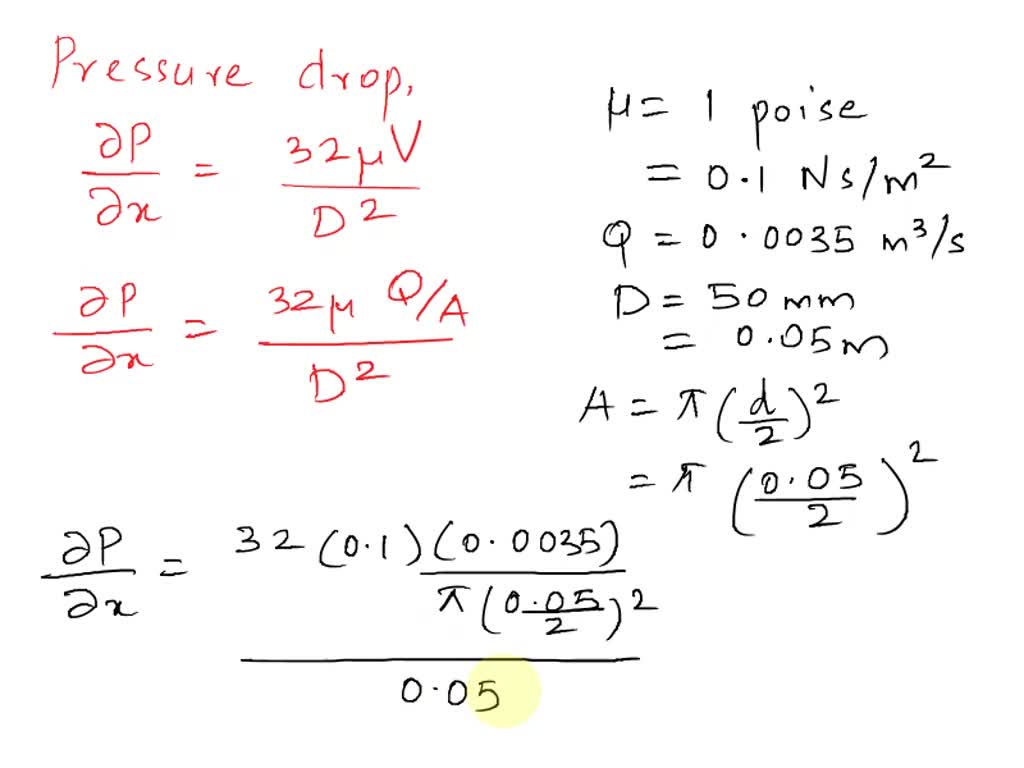 Pressure drop,
∂P/∂x = 32μV/D²
∂P/∂x = 32μ Q/A / D²
μ = 1 poise
= 0.1 Ns/m²
Q = 0.0035 m³/s
D = 50 mm
= 0.05 m
A = π(d/2)²
= π(0.05/2)²
∂P/∂x = 32(0.1)(0.0035)/π(0.05/2)² / 0.05